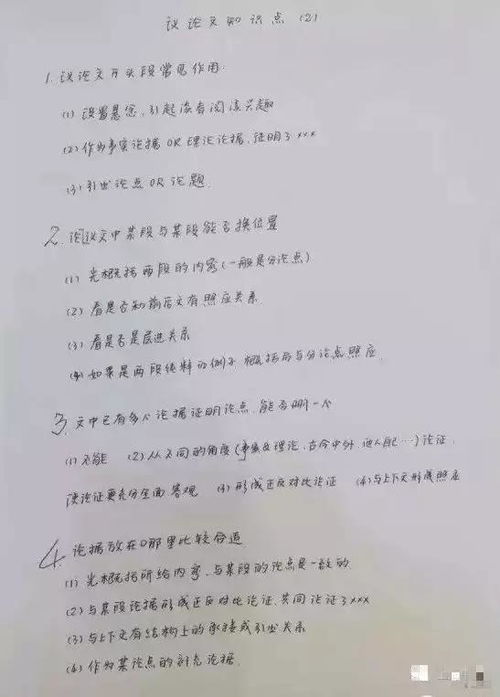 议论文知识点 (2)
1. 议论文开头段常见作用:
(1) 设置悬念, 引起读者阅读兴趣
(2) 作为事实论据 OR 理论论据, 证明了 xxx
(3) 引出论点 OR 论题.
2. 论议文中某段与某段能否换位置
(1) 先概括两段的内容 (一般是分论点)
(2) 看是否和前后文有照应关系.
(3) 看是否是层进关系
(4) 如果是两段纯料的例子 概括后与分论点照应.
3. 文中已有多个论据证明论点, 能否删一个
(1) 不能 (2) 从不同的角度 (事实&理论, 古今中外, ...) 论证,
使论证更充分全面 客观 (3) 形成正反对比论证 (4) 与上下文形成照应
4 论据放在哪里比较合适
(1) 先概括所给内容, 与某段的论点是一致的.
(2) 与某段论据形成正反对比论证, 共同论证了xxx
(3) 与上下文有结构上的承接或引出关系
(4) 作为某论点的补充论据.